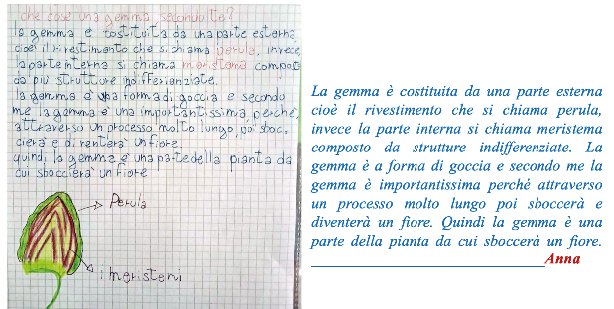 che cos'è una gemma, secondo te?
la gemma è costituita da una parte esterna
cioè il rivestimento che si chiama perula, invece
la parte interna si chiama meristema composto
da più strutture indifferienziate.
la gemma è una forma di goccia e secondo
me la gemma è una importantissima perché,
attraverso un processo molto lungo, poi sboc.
cierà e diventerà un fiore.
quindi la gemma è una parte della pianta da
cui sboccierà un fiore
Perula
i meristemi
La gemma è costituita da una parte esterna
cioè il rivestimento che si chiama perula,
invece la parte interna si chiama meristema
composto da strutture indifferenziate. La
gemma è a forma di goccia e secondo me la
gemma è importantissima perché attraverso
un processo molto lungo poi sboccerà e
diventerà un fiore. Quindi la gemma è una
parte della pianta da cui sboccerà un fiore.
Anna